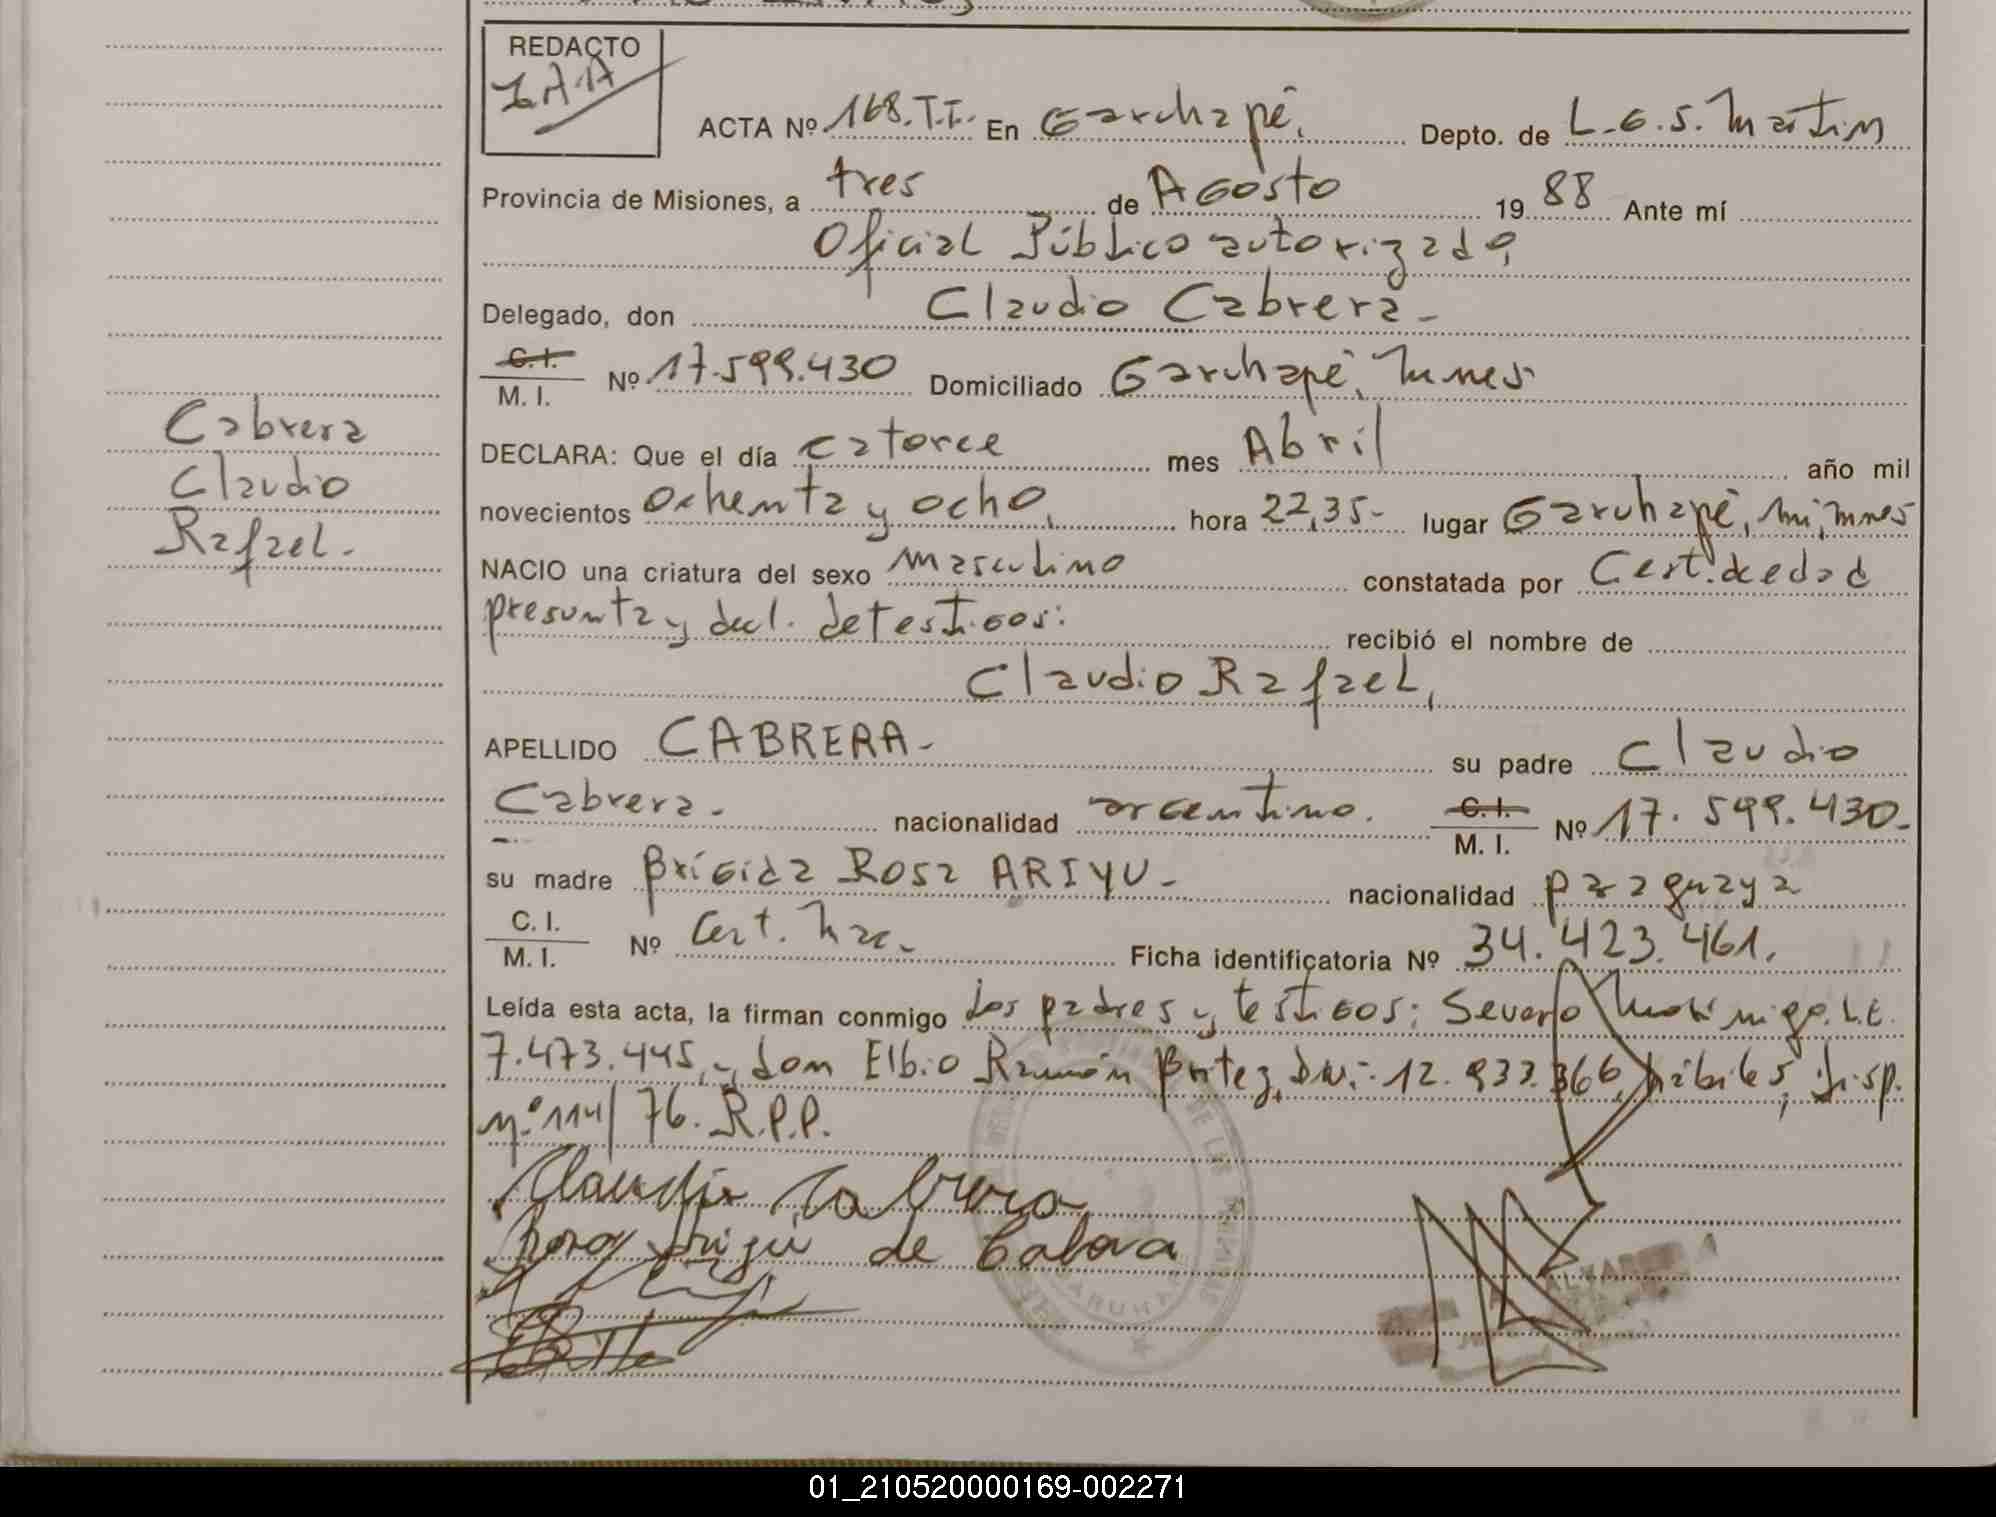 REDACTO
ACTA Nº 168.T.T. En Garuhapé, Depto. de L.G.S. Martin
Provincia de Misiones, a tres de Agosto 1988 Ante mí
Oficial Público autorizado,
Delegado, don Claudio Cabrera-
C.I.
M. I. Nº 17.599.430 Domiciliado Garuhapé,
Cabrera
Claudio
Rafael.
DECLARA: Que el día catorce mes Abril año mil
novecientos ochenta y ocho, hora 22,35- lugar Garuhapé,
NACIO una criatura del sexo masculino constatada por Cert. de edad
presunta y decl. de testigos: recibió el nombre de
Claudio Rafael,
APELLIDO CABRERA- su padre Claudio
Cabrera- nacionalidad argentino. C.I.
M. I. Nº 17.599.430-
su madre Brígida Rosa ARIYU- nacionalidad paraguaya
C. I.
M. I. Nº Cert. Nac. Ficha identificatoria Nº 34.423.461,
Leída esta acta, la firman conmigo los padres y testigos: Severo L.E.
7.473.445, y don Elbio Ramón Britez, DNI: 12.933.366, hábiles, disp.
nº 114/76. R.P.P.
Claudio Cabrera
Rosa de
01_210520000169-002271